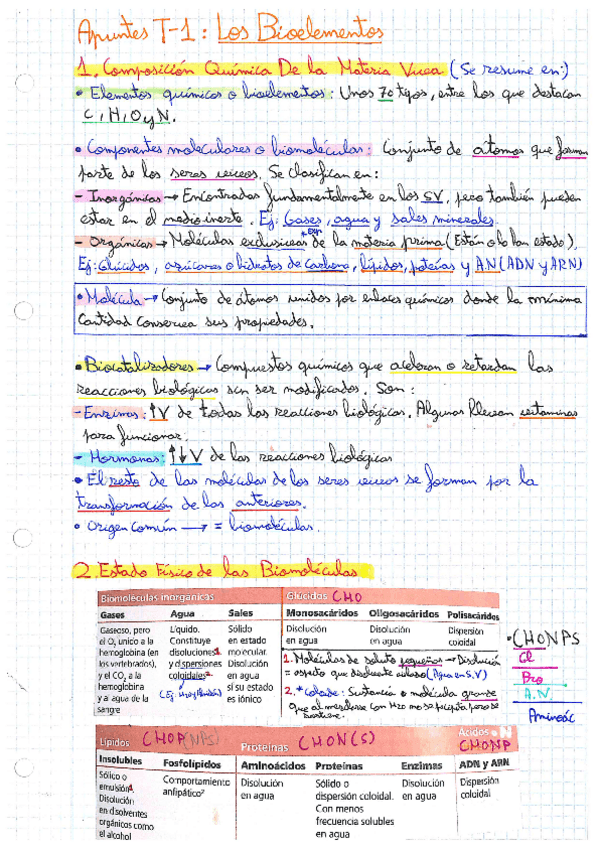 Apuntes T-1: Los Bioelementos
1. Composición Química De la Materia Viva (Se resume en:)
• Elementos químicos o bioelementos: Unos 70 tipos, entre los que destacan
C, H, O y N.
• Componentes moleculares o biomoléculas: Conjunto de átomos que forman
parte de los seres vivos. Se clasifican en:
- Inorgánicas → Encontradas fundamentalmente en los SV, pero también pueden
estar en el medio inerte. Ej: Gases, agua y sales minerales.
- Orgánicas → Moléculas exclusivas de la materia prima (Están o lo han estado).
Ej: Glúcidos, azúcares o hidratos de carbono, lípidos, poteínas y A.N (ADN y ARN)
• Molécula → Conjunto de átomos unidos por enlaces químicos donde la mínima
cantidad conserva sus propiedades.
• Biocatalizadores → Compuestos químicos que aceleran o retardan las
reacciones biológicas sin ser modificados. Son:
- Enzimas: ↑V de todas las reacciones biológicas. Algunas llevan vitaminas
para funcionar.
- Hormonas: ↑↓V de las reacciones biológicas
• El resto de las moléculas de los seres vivos se forman por la
transformación de las anteriores.
• Origen común → = biomoléculas.
2. Estado Físico de las Biomoléculas
Biomoléculas inorgánicas Glúcidos CHO
Gases Agua Sales Monosacáridos Oligosacáridos Polisacáridos
Gaseoso, pero
el O₂ unido a la
hemoglobina (en
los vertebrados),
y el CO₂ a la
hemoglobina
y a agua de la
sangre
Líquido.
Constituye
disoluciones1
y dispersiones
coloidales2
Sólido
en estado
molecular.
Disolución
en agua
si su estado
es iónico
Disolución
en agua
Disolución
en agua
Dispersión
coloidal
1. Moléculas de soluto pequeñas → Disolución
= aspecto que disolvente
(Agua en S.V)
2. * Coloide: Sustancia o molécula grande
que al mezclarse con H2O no se precipita pero se
• CHONPS
Gl
Pro
A.N
Aminoác
Lípidos CHOP(NPS) Proteínas CHON(S) Ácidos N CHONP
Insolubles Fosfolípidos Aminoácidos Proteínas Enzimas ADN y ARN
Sólido o
emulsión1
Disolución
en disolventes
orgánicos como
el alcohol
Comportamiento
anfipático2
Disolución
en agua
Sólido o
dispersión coloidal.
Con menos
frecuencia solubles
en agua
Disolución
en agua
Dispersión
coloidal